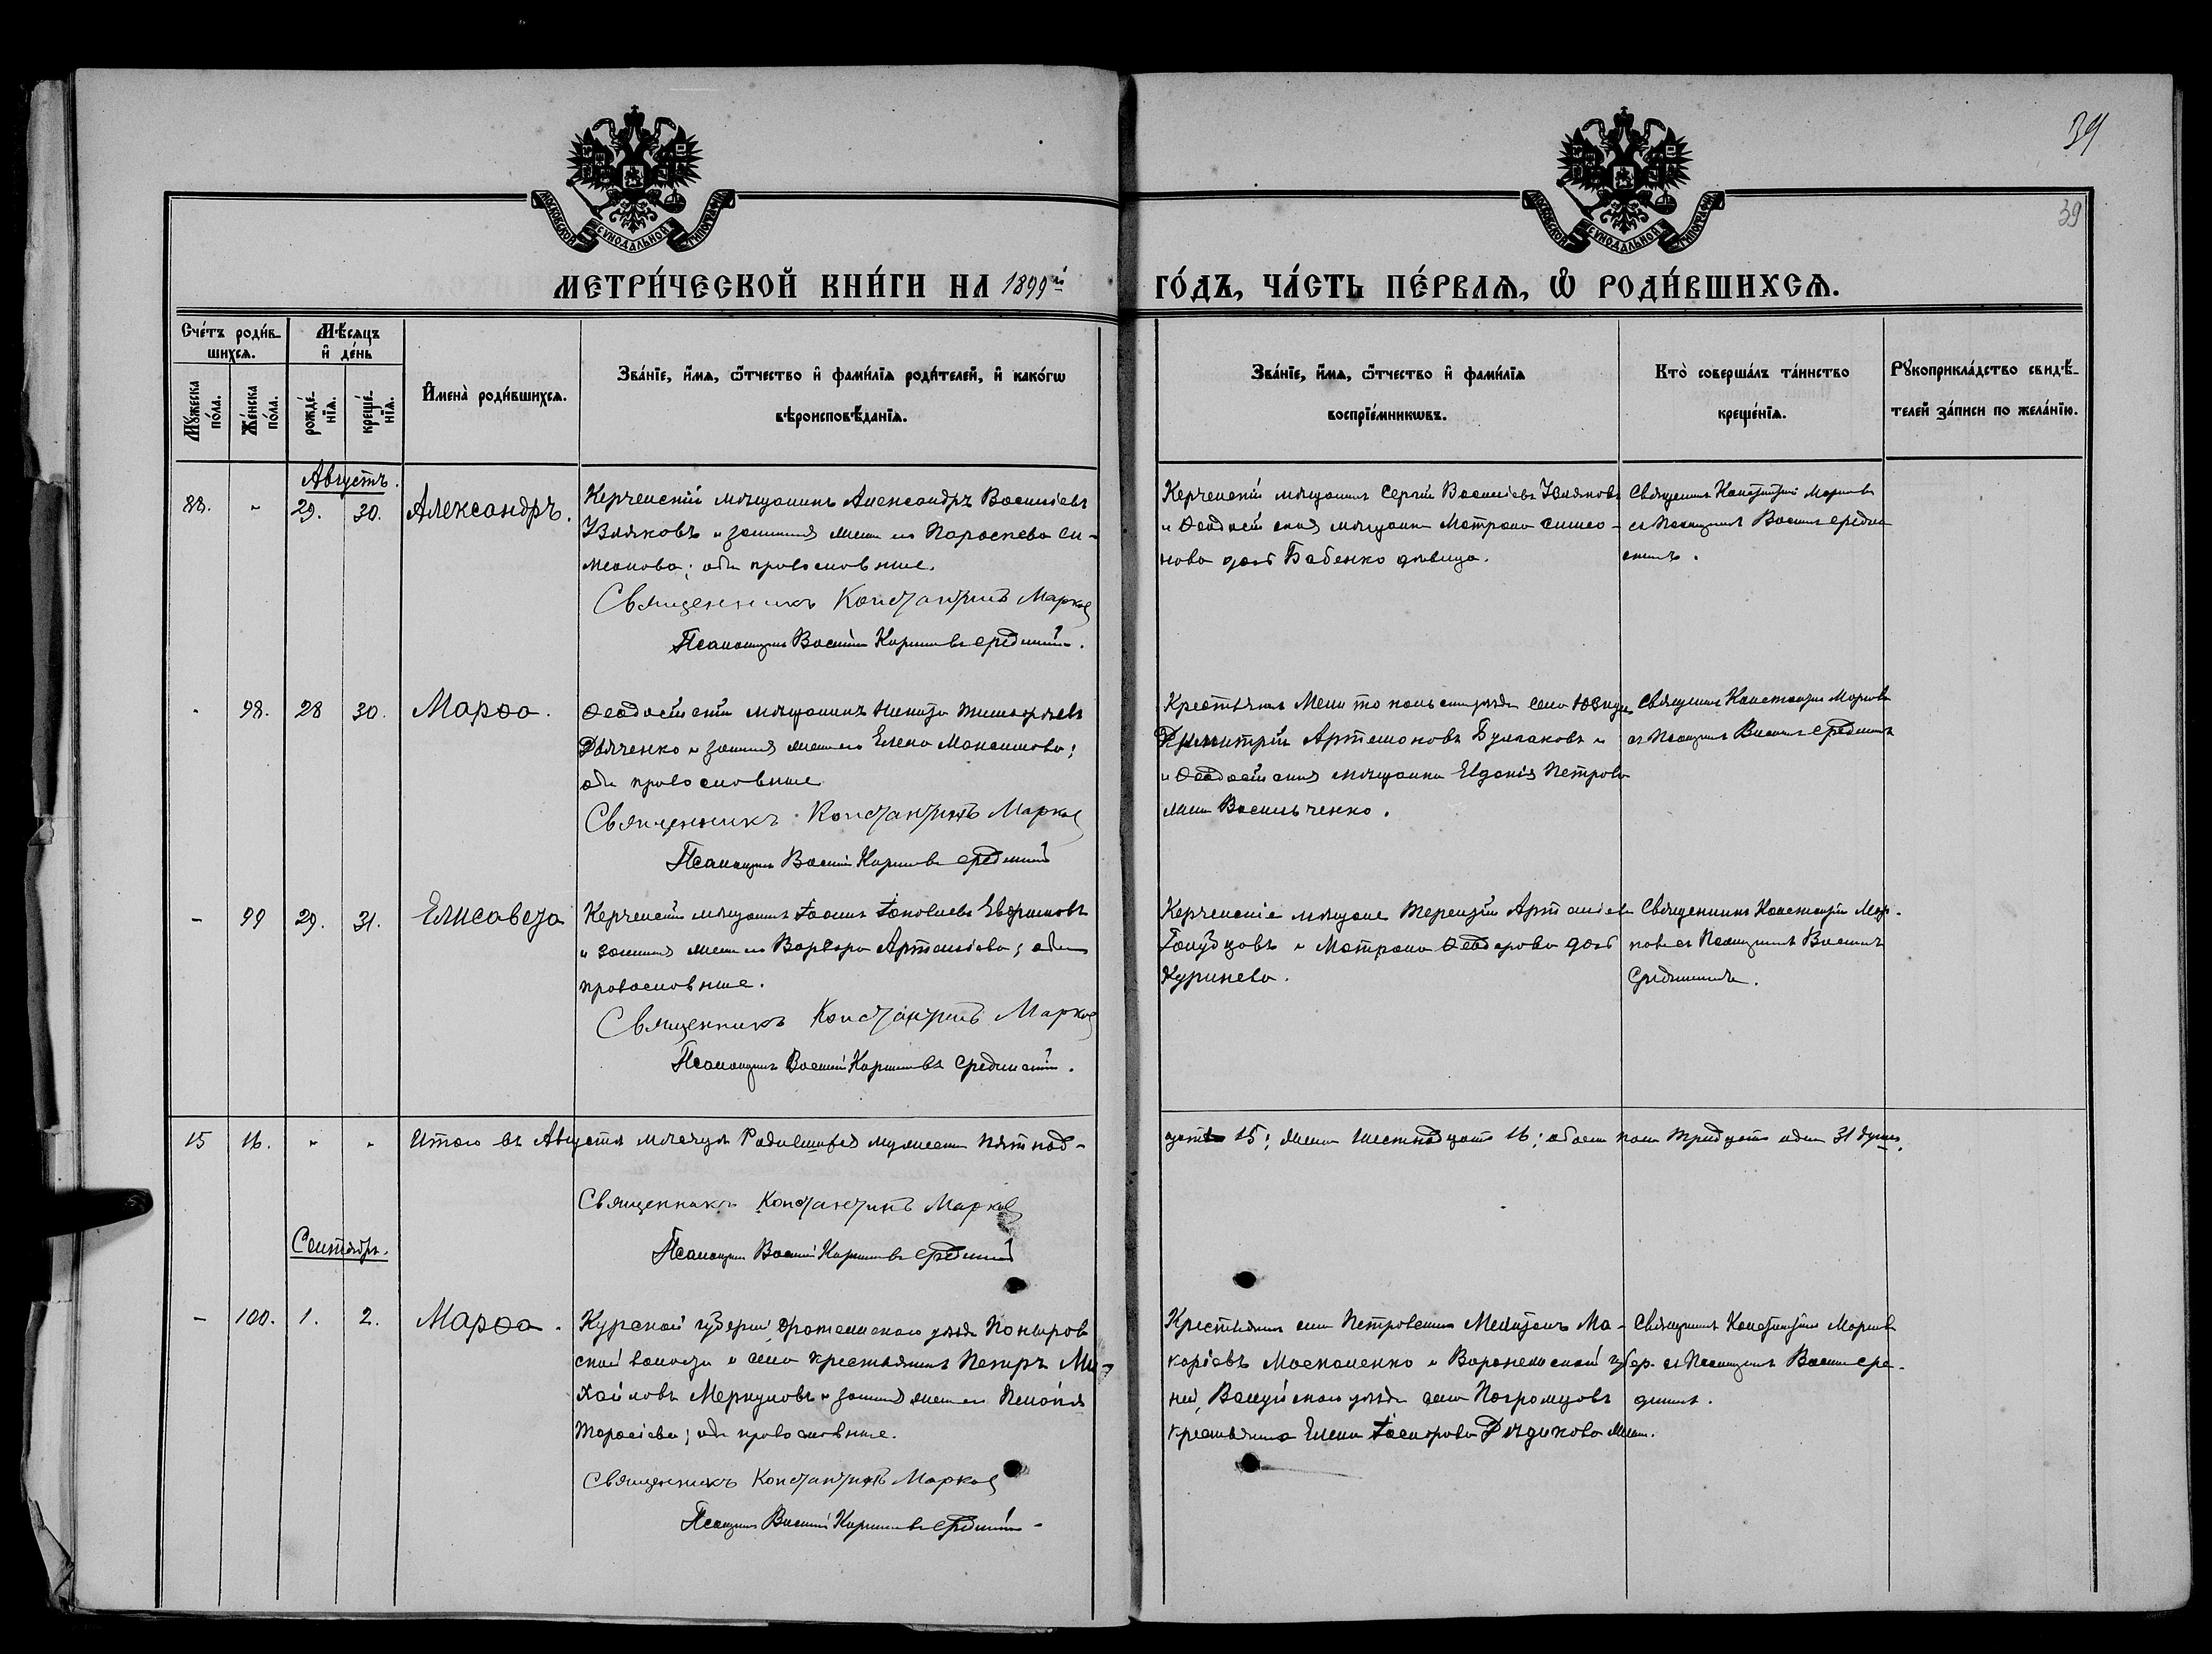 39
39
МОСКОВСКОЙ СѴНОДАЛЬНОЙ ТИПОГРАФІИ
МОСКОВСКОЙ СѴНОДАЛЬНОЙ ТИПОГРАФІИ
МЕТРИ́ЧЕСКОЙ КНИ́ГИ НА 1899й ГО́ДЪ, ЧА́СТЬ ПЕ́РВАѦ, Ѡ РОДИ́ВШИХСѦ.
Сче́тъ роди́в-
шихсѧ.
Мѣ́сѧцъ
и де́нь
Мꙋ́жеска
по́ла.
Же́нска
по́ла.
рожде́-
нїѧ.
креще́-
нїѧ.
Имена̀ роди́вшихсѧ.
Зва́нїе, и́мѧ, ѻ́тчество и фами́лїѧ роди́телей, и како́гѡ
вѣроисповѣ́данїѧ.
Зва́нїе, и́мѧ, ѻ́тчество и фами́лїѧ
воспрїе́мникѡвъ.
Кто̀ соверша́лъ та́инство
креще́нїѧ.
Рꙋкоприкла́дство свидѣ́-
телей за́писи по жела́нїю.
Августъ.
88. 29. 30. Александръ.
Керченскій мѣщанинъ Александръ Васильевъ
и законная жена его Параскева Си-
меонова; оба православные.
Священникъ Константинъ Марковъ
Псаломщикъ Василій Срединскій.
Керченскій мѣщанинъ Сергій Васильевъ
и Ѳеодосійская мѣщанка Матрона Симео-
нова дочь Бабенко дѣвица.
Священникъ Константинъ Марковъ
съ Псаломщикомъ Василіемъ Средин-
скимъ.
- 98. 28 30. Марѳа.
Ѳеодосійскій мѣщанинъ Никита Тимоѳеевъ
Дьяченко и законная жена его Елена Максимова;
оба православные
Священникъ Константинъ Марковъ
Псаломщикъ Василій Срединскій
Крестьянинъ Мелитопольскаго уѣзда села
Димитрій Артемоновъ Булгаковъ и
и Ѳеодосійская мѣщанка Евдокія Петрова
жена Васильченко.
Священникъ Константинъ Марковъ
съ Псаломщикомъ Василіемъ Срединскимъ
- 99 29. 31. Елисавета
Керченскій мѣщанинъ Іоаннъ Іаковлевъ Евфимовъ
и законная жена его Варвара Артеміева; оба
православные.
Священникъ Константинъ Марковъ
Псаломщикъ Василій Срединскій.
Керченскіе мѣщане Терентій Артеміевъ
Голубцовъ и Матрона Ѳеодорова дочь
Куринева.
Священникъ Константинъ Мар-
ковъ съ Псаломщикомъ Василіемъ
Срединскимъ.
15 16. Итого въ Августѣ мѣсяцѣ Родившихся мужеска пятнад-
цать 15; женска шестнадцать 16; обоего пола тридцать одна 31 душа.
Священникъ Константинъ Марковъ
Псаломщикъ Василій Срединскій
Сентябрь.
- 100. 1. 2. Марѳа.
Курской губерніи, уѣзда Поныров-
ской волости и села крестьянинъ Петръ Ми-
хайловъ Меркуловъ и законная жена его Пелагія
Тарасіева; оба православные.
Священникъ Константинъ Марковъ
Псаломщикъ Василій Срединскій
Крестьянинъ села Петровскаго Ма-
каріевъ Москаленко и Воронежской губер-
ніи, Валуйскаго уѣзда села Погромцовъ
крестьянка Елена
Священникъ Константинъ Марковъ
съ Псаломщикомъ Василіемъ Сре-
динск.